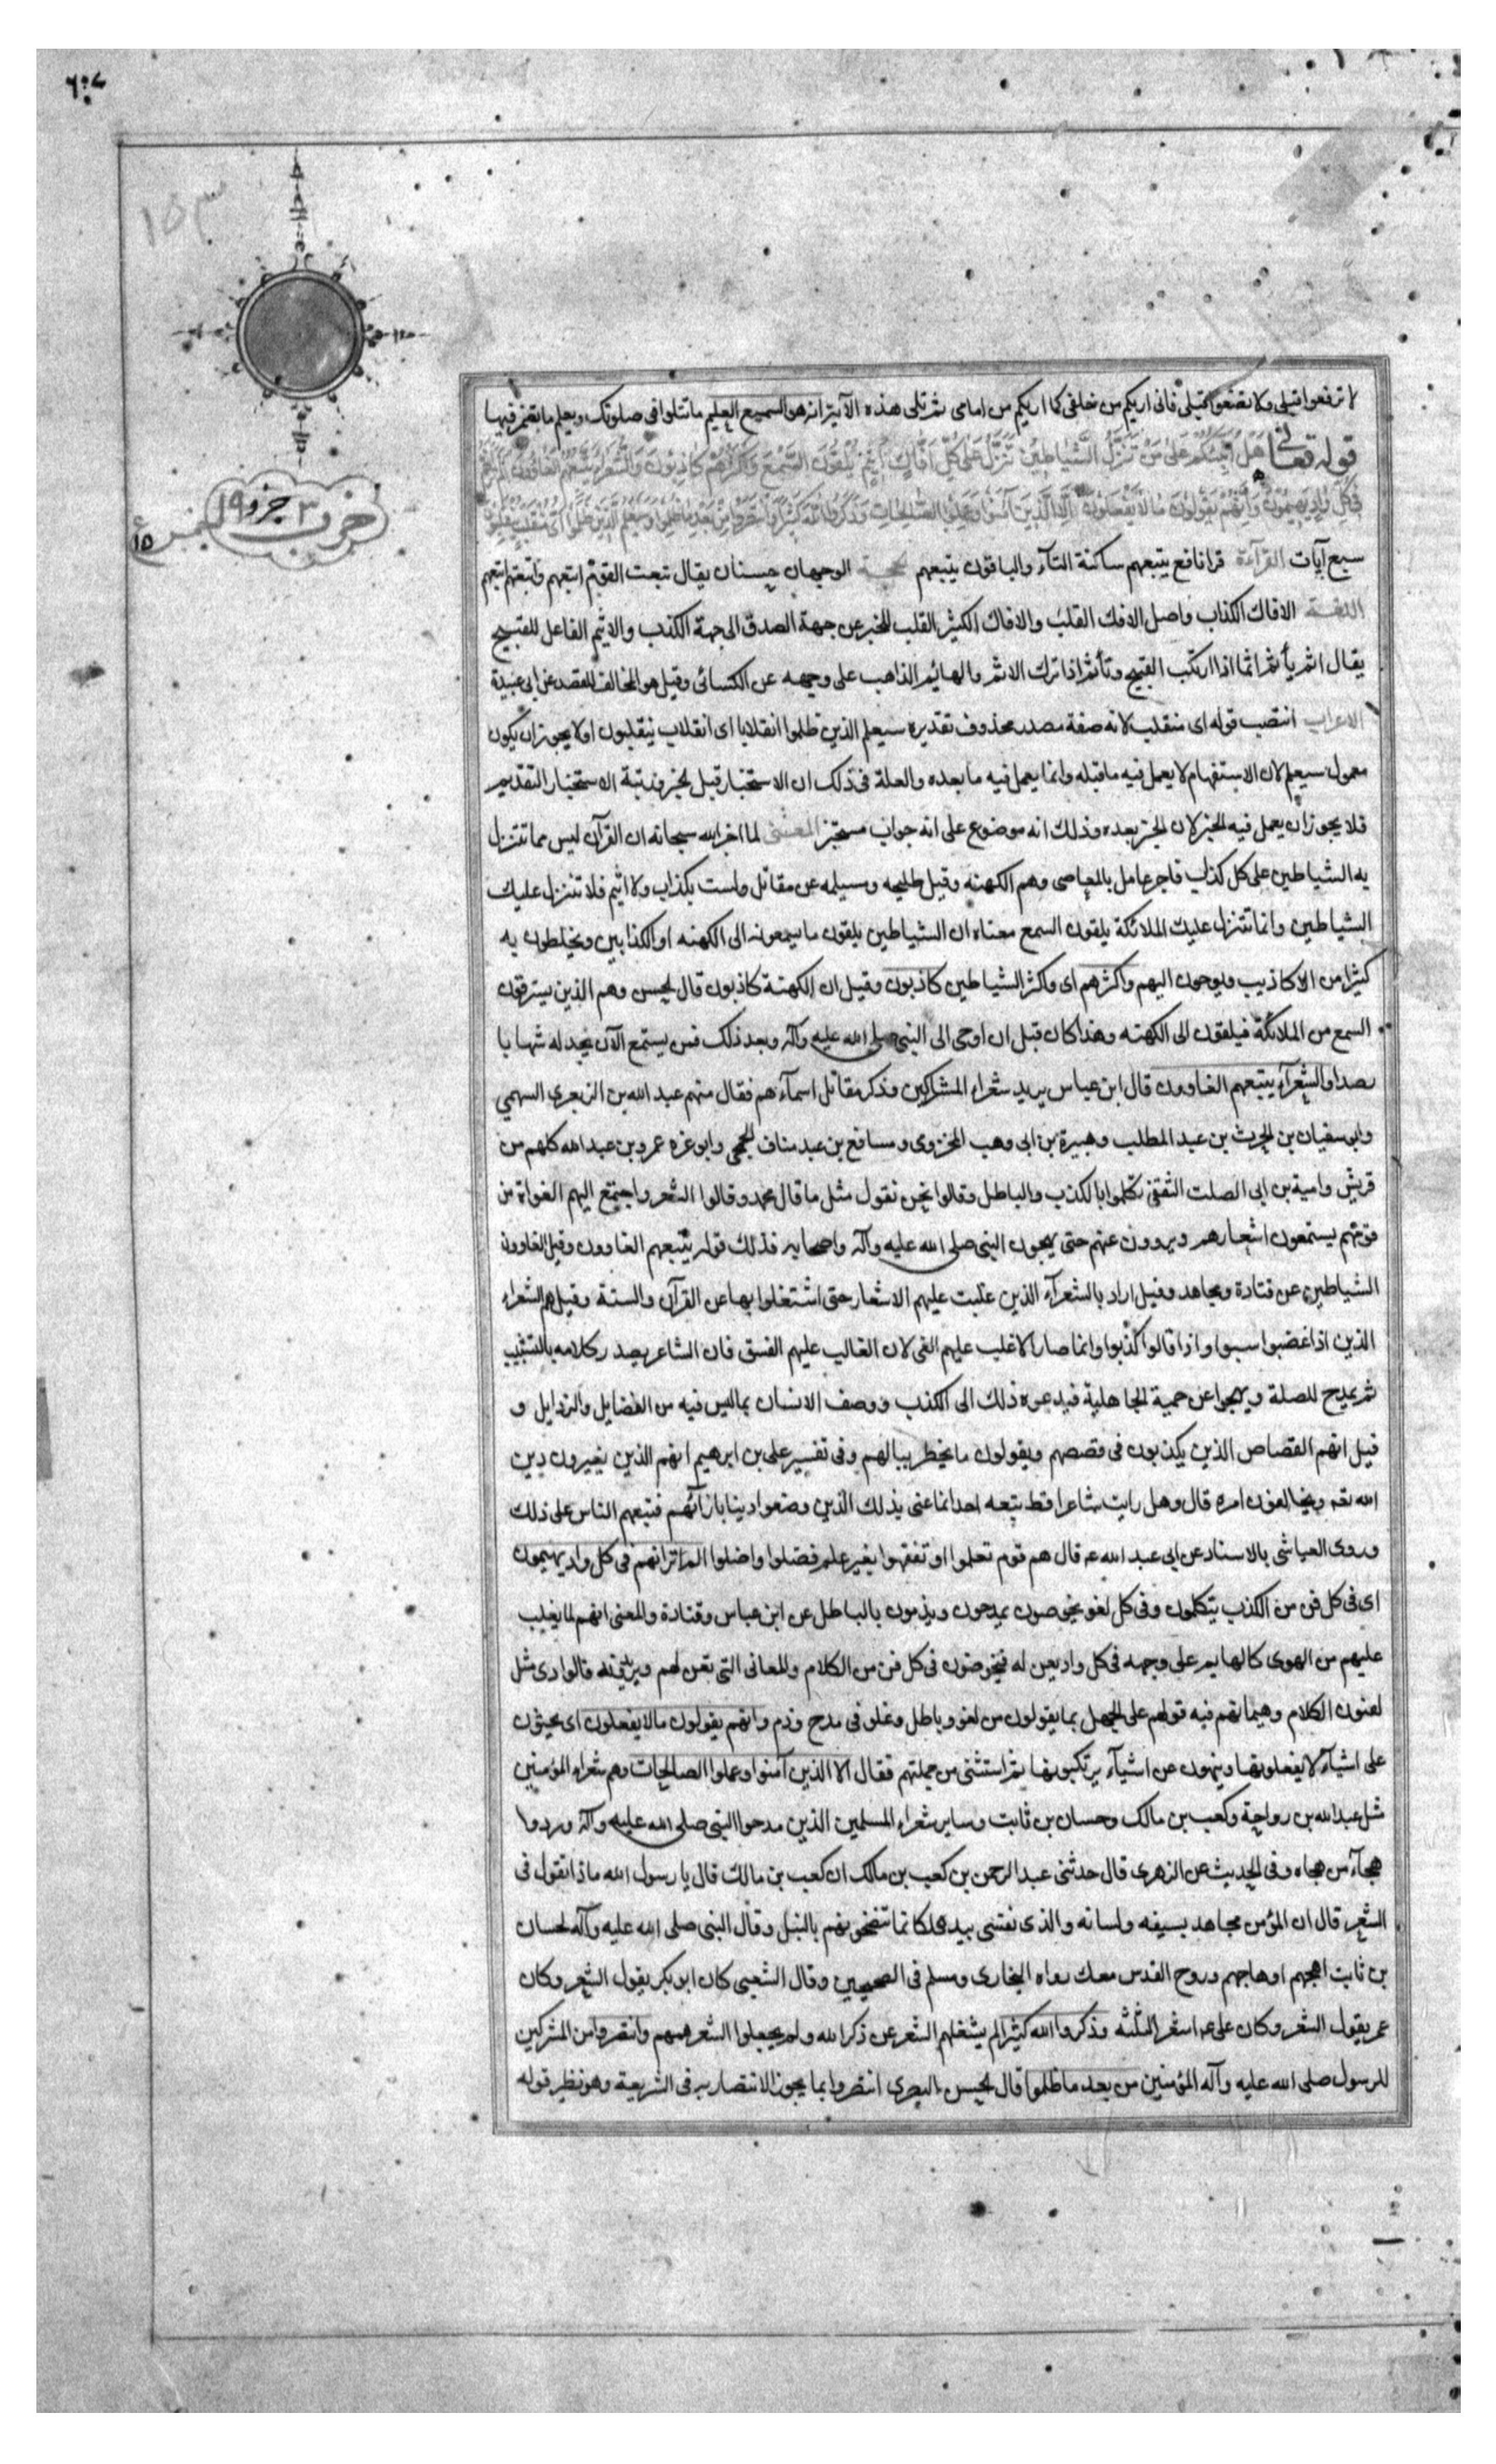 لا ترفعوا قبلى ولا تضعوا قبلى فانى اريكم من خلفى كما اريكم من امامى ثم تلى هذه الآية انه هو السميع العليم ما تتلوا فى صلوتك ويعلم ما تضمر فيها
قوله تعالى هَلْ أُنَبِّئُكُمْ عَلى مَنْ تَنَزَّلُ الشَّياطِينُ تَنَزَّلُ عَلى كُلِّ أَفَّاكٍ أَثِيمٍ يُلْقُونَ السَّمْعَ وَأَكْثَرُهُمْ كاذِبُونَ وَالشُّعَراءُ يَتَّبِعُهُمُ الْغاوُونَ أَلَمْ تَرَ أَنَّهُمْ
فِي كُلِّ وادٍ يَهِيمُونَ وَأَنَّهُمْ يَقُولُونَ ما لا يَفْعَلُونَ إِلَّا الَّذِينَ آمَنُوا وَعَمِلُوا الصَّالِحاتِ وَذَكَرُوا اللَّهَ كَثِيراً وَانْتَصَرُوا مِنْ بَعْدِ ما ظُلِمُوا وَسَيَعْلَمُ الَّذِينَ ظَلَمُوا أَيَّ مُنْقَلَبٍ يَنْقَلِبُونَ
سبع آيات القرآءة قرا نافع يتبعهم ساكنة التآء والباقون يتبعهم الحجة الوجهان حسنان يقال تبعت القوم اتبعهم واتبعتهم اتبعهم
اللغة الافاك الكذاب واصل الافك القلب والافاك الكثير القلب للخبر عن جهة الصدق الى جهة الكذب والاثيم الفاعل للقبيح
يقال اثم يأثم اثما اذا ارتكب القبيح وتأثم اذا ترك الاثم والهائم الذاهب على وجهه عن الكسائى وقيل هو المخالف للقصد عن ابى عبيدة
الاعراب انتصب قوله اى منقلب لانه صفة مصدر محذوف تقديره سيعلم الذين ظلموا انقلابا اى انقلاب ينقلبون اولا يجوز ان يكون
معمول سيعلم لان الاستفهام لا يعمل فيه ما قبله وانما يعمل فيه ما بعده والعلة فى ذلك ان الاستخبار قبل الخبر ورتبة الاستخبار التقديم
فلا يجوز ان يعمل فيه الخبر لان الخبر بعده وذلك انه موضوع على انه جواب مستخبر المعنى لما اخبر الله سبحانه ان القرآن ليس مما تتنزل
به الشياطين على كل كذاب فاجر عامل بالمعاصى وهم الكهنه وقيل طليحه ومسيلمه عن مقاتل ولست بكذاب ولا اثيم فلا تتنزل عليك
الشياطين وانما تتنزل عليك الملائكة يلقون السمع معناه ان الشياطين يلقون ما يسمعونه الى الكهنه او الكذابين ويخلطون به
كثيرا من الاكاذيب ويوحون اليهم واكثرهم اى واكثر الشياطين كاذبون وقيل ان الكهنة كاذبون قال الحسن وهم الذين يسترقون
السمع من الملائكة فيلقون الى الكهنه وهذا كان قبل ان اوحى الى النبى صلى الله عليه وآله وبعد ذلك فمن يستمع الآن يجد له شهابا
رصدا والشعرآء يتبعهم الغاوون قال ابن عباس يريد شعراء المشركين وذكر مقاتل اسمآءهم فقال منهم عبد الله بن الزبعرى السهمي
وابو سفيان بن الحرث بن عبد المطلب وهبيرة بن ابى وهب المخزومى ومسافع بن عبد مناف الجمحى وابو عزه عمرو بن عبد الله كلهم من
قريش وامية بن ابى الصلت الثقفى تكلموا بالكذب والباطل وقالوا نحن نقول مثل ما قال محمد وقالوا الشعر واجتمع اليهم الغواة من
قومهم يستمعون اشعارهم ويروون عنهم حتى يهجون النبى صلى الله عليه وآله واصحابه فذلك قوله يتبعهم الغاوون وقيل الغاوون
الشياطين عن قتادة ومجاهد وقيل اراد بالشعرآء الذين غلبت عليهم الاشعار حتى اشتغلوا بها عن القرآن والسنة وقيل هم الشعراء
الذين اذا غضبوا سبوا واذا قالوا كذبوا وانما صار الاغلب عليهم الغى لان الغالب عليهم الفسق فان الشاعر يصدر كلامه بالتشبيب
ثم يمدح للصلة ويهجوا عن حمية الجاهلية فيدعوه ذلك الى الكذب ووصف الانسان بما ليس فيه من الفضايل والرذايل و
قيل انهم القصاص الذين يكذبون فى قصصهم ويقولون ما يخطر ببالهم وفى تفسير على بن ابرهيم انهم الذين يغيرون دين
الله تعه ويخالفون امره قال وهل رايت شاعرا قط يتبعه احد انما عنى بذلك الذين وضعوا دينا بارآئهم فتبعهم الناس على ذلك
وروى العياشى بالاسناد عن ابى عبد الله عه قال هم قوم تعلموا او تفقهوا بغير علم فضلوا واضلوا الم تر انهم فى كل واد يهيمون
اى فى كل فن من الكذب يتكلمون وفى كل لغو يخوضون يمدحون ويذمون بالباطل عن ابن عباس وقتادة والمعنى انهم لما يغلب
عليهم من الهوى كالهايم على وجهه فى كل واد يعن له فيخوضون فى كل فن من الكلام والمعانى التى تعن لهم ويريدونه فالوادى مثل
لفنون الكلام وهيمانهم فيه قولهم على الجهل بما يقولون من لغو وباطل وغلو فى مدح وذم وانهم يقولون ما لا يفعلون اى يحثون
على اشيآء لا يفعلونها وينهون عن اشيآء يرتكبونها ثم استثنى من جملتهم فقال الا الذين آمنوا وعملوا الصالحات وهم شعراء المؤمنين
مثل عبد الله بن رواحة وكعب بن مالك وحسان بن ثابت وساير شعراء المسلمين الذين مدحوا النبى صلى الله عليه وآله وردوا
هجآء من هجاه وفى الحديث عن الزهرى قال حدثنى عبد الرحمن بن كعب بن مالك ان كعب بن مالك قال يا رسول الله ماذا تقول فى
الشعر قال ان المؤمن مجاهد بسيفه ولسانه والذى نفسى بيده لكانما تنضحونهم بالنبل وقال النبى صلى الله عليه وآله لحسان
بن ثابت اهجهم او هاجهم وروح القدس معك رواه البخارى ومسلم فى الصحيحين وقال الشعبى كان ابو بكر يقول الشعر وكان
عمر يقول الشعر وكان على عه اشعر الثلثه وذكروا الله كثيرا لم يشغلهم الشعر عن ذكر الله ولم يجعلوا الشعر همهم وانتصروا من المشركين
للرسول صلى الله عليه وآله المؤمنين من بعد ما ظلموا قال الحسن البصرى انتصروا بما يجوز الانتصار به فى الشريعة وهو نظير قوله
حزب ٣ جزو ١٩
١٥
١٥٣